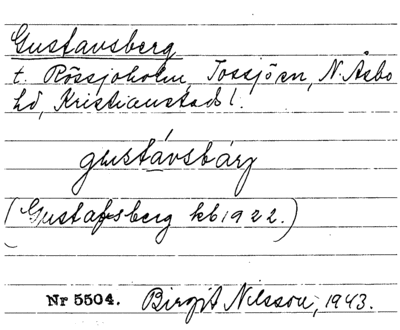 Gustavsberg
t. Rössjöholm, Tossjö sn, N. Åsbo
hd, Kristianstads l.
gustávsbárj
(Gustafsberg kb 1922.)
Nr 5504. Birgit Nilsson, 1943.